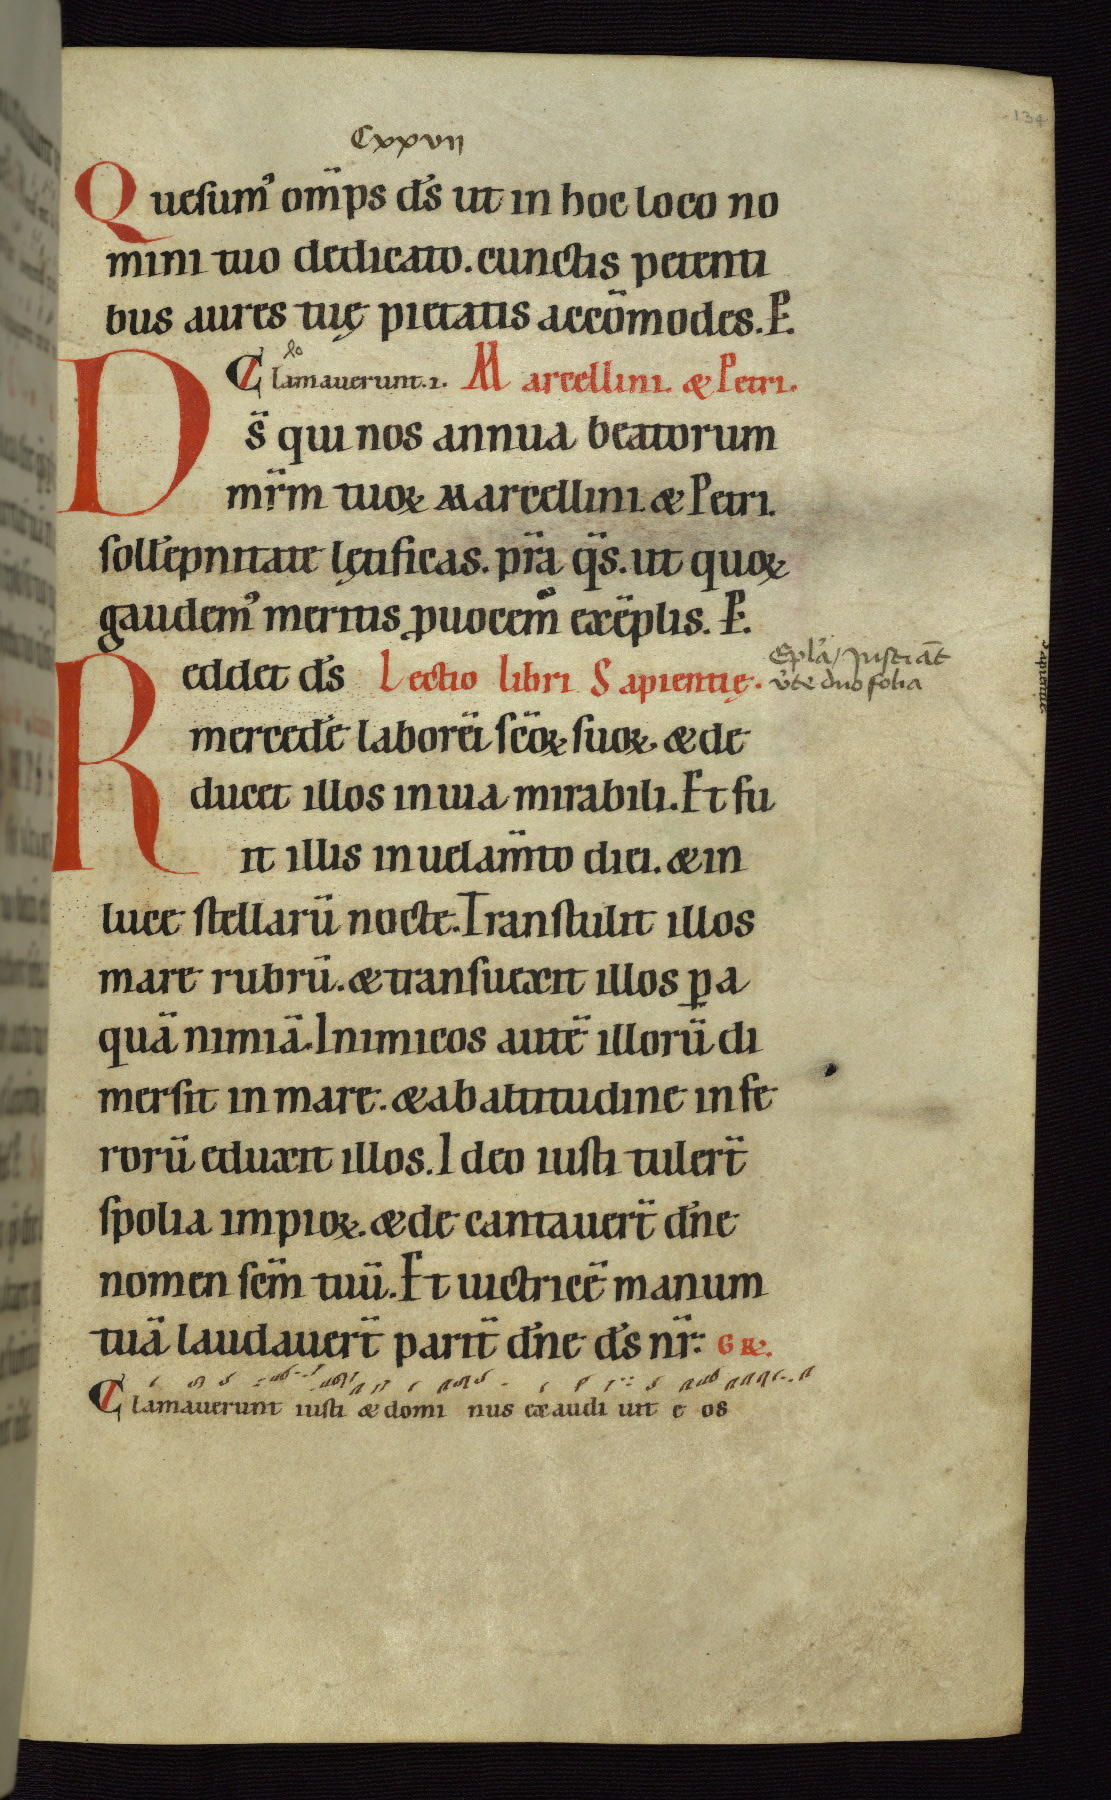 Cxxvii
134
Quesum᾽ om̄ps ds̄ ut in hoc loco no
mini tuo dedicato. cunctis petenti
bus aures tuę pietatis accōmodes. P.
Clamauerunt. 1. Marcellini. & Petri.
Ds̄ qui nos annua beatorum
mr̄m tuoꝝ Marcellini. & Petri.
sollēpnitate lętificas. pr̄a q̄s. ut quoꝝ
gaudem᾽ meritis ꝓuocem᾽ exēplis. P.
Reddet ds̄ Lectio libri Sapientię.
Epl̄a / Justi aūt
v̄te duo folia
mercedē laborū sc̄oꝝ suoꝝ. & de
ducet illos in uia mirabili. Et fu
it illis in uelam̄to diei. & in
luce stellarū nocte. Transtulit illos
mare rubrū. & transuexit illos ꝑ a
quā nimiā. Inimicos autē illorū di
mersit in mare. & ab altitudine infe
rorū eduxit illos. Ideo iusti tulert̄
spolia impioꝝ. & decantauert̄ dn̄e
nomen sc̄m tuū. Et uictricē manum
tuā laudauert̄ parit̄ dn̄e ds̄ nr̄: GR.
Clamauerunt iusti & domi nus exaudi uit e os